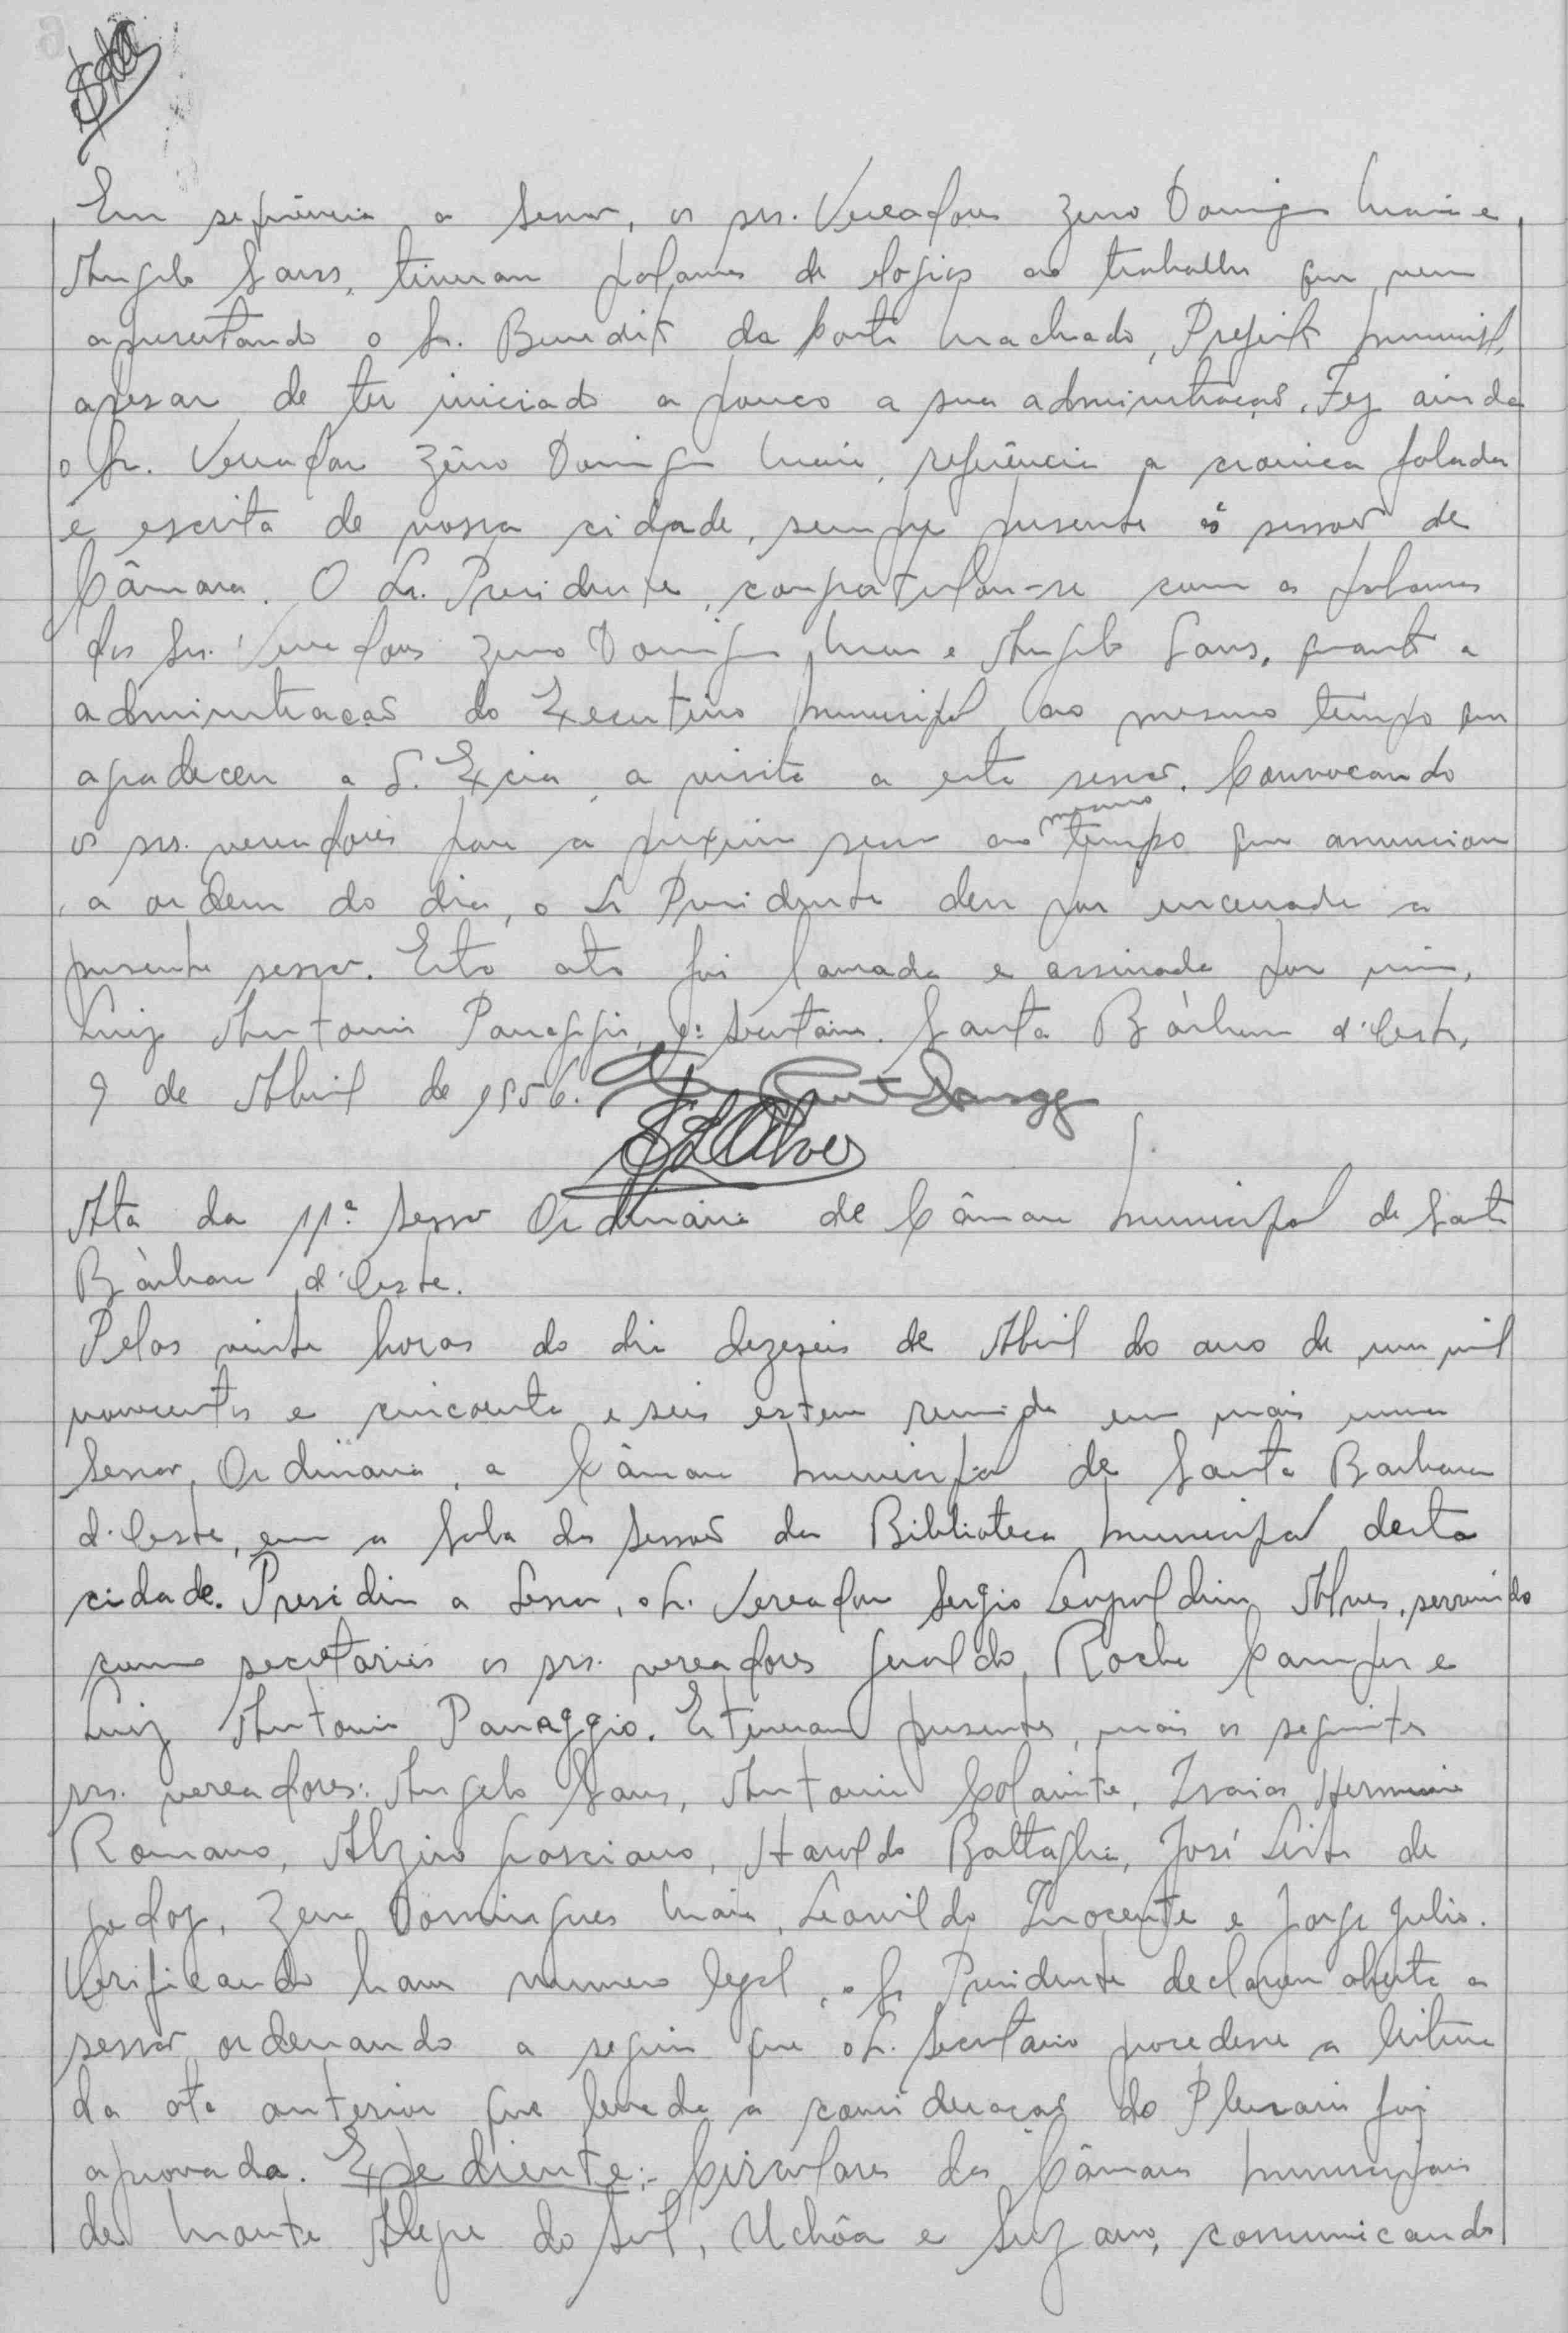 Em sequência a Sessão, os srs. Vereadores Zeno Domingues Maia e
Angelo Sans, tiveram palavras de elogios ao trabalho que vem
apresentando o Sr. Benedito da Costa Machado, Prefeito Municipal,
apesar de ter iniciado a pouco a sua administração. Fez ainda
o Sr. Vereador Zêno Domingues Maia, referência a cronica falada
e escrita de nossa cidade, sempre presente às sessões de
Câmara. O Sr. Presidente, congratulou-se com as palavras
dos Srs. Vereadores Zeno Domingues Maia e Angelo Sans, quanto a
administração do Executivo Municipal, ao mesmo tempo que
agradeceu a S. Excia, a visita a esta sessão. Convocando
os srs. vereadores para a proxima sessão ao mesmo tempo que anunciou
a ordem do dia, o Sr Presidente deu por encerrada a
presente sessão. Esta ata foi lavrada e assinada por mim,
Luiz Antonio Panaggio, 2º Secretario. Santa Bárbara d'Oeste,
9 de Abril de 1956.
SLAlves
Ata da 11ª Sessão Ordinária de Câmara Municipal de Santa
Bárbara d'Oeste.
Pelas vinte horas do dia dezeseis de Abril do ano de um mil
novecentos e cincoenta e seis esteve reunida em mais uma
Sessão Ordinaria, a Câmara Municipal de Santa Barbara
d'Oeste, em a Sala das Sessões da Biblioteca Municipal desta
cidade. Presidiu a Sessão, o Sr. Vereador Sergio Leopoldino Alves, servindo
como secretarios os srs. vereadores Geraldo Rocha Campos e
Luiz Antonio Panaggio. Estiveram presentes, mais os seguintes
srs. vereadores: Angelo Sans, Antonio Colainte, Isaias Herminio
Romano, Alziro Gosciano, Haroldo Battaglia, José Leite de
Godoy, Zeno Domingues Maia, Leonildo Inocente e Jorge Julio.
Verificando haver numero legal, o Sr Presidente declarou aberta a
sessão ordenando a seguir que o Sr. Secretario procedesse a leitura
da ata anterior que levada a consideração do Plenario foi
aprovada. Expediente:- Circulares das Câmaras Municipais
de Monte Alegre do Sul, Uchôa e Suzano, comunicando